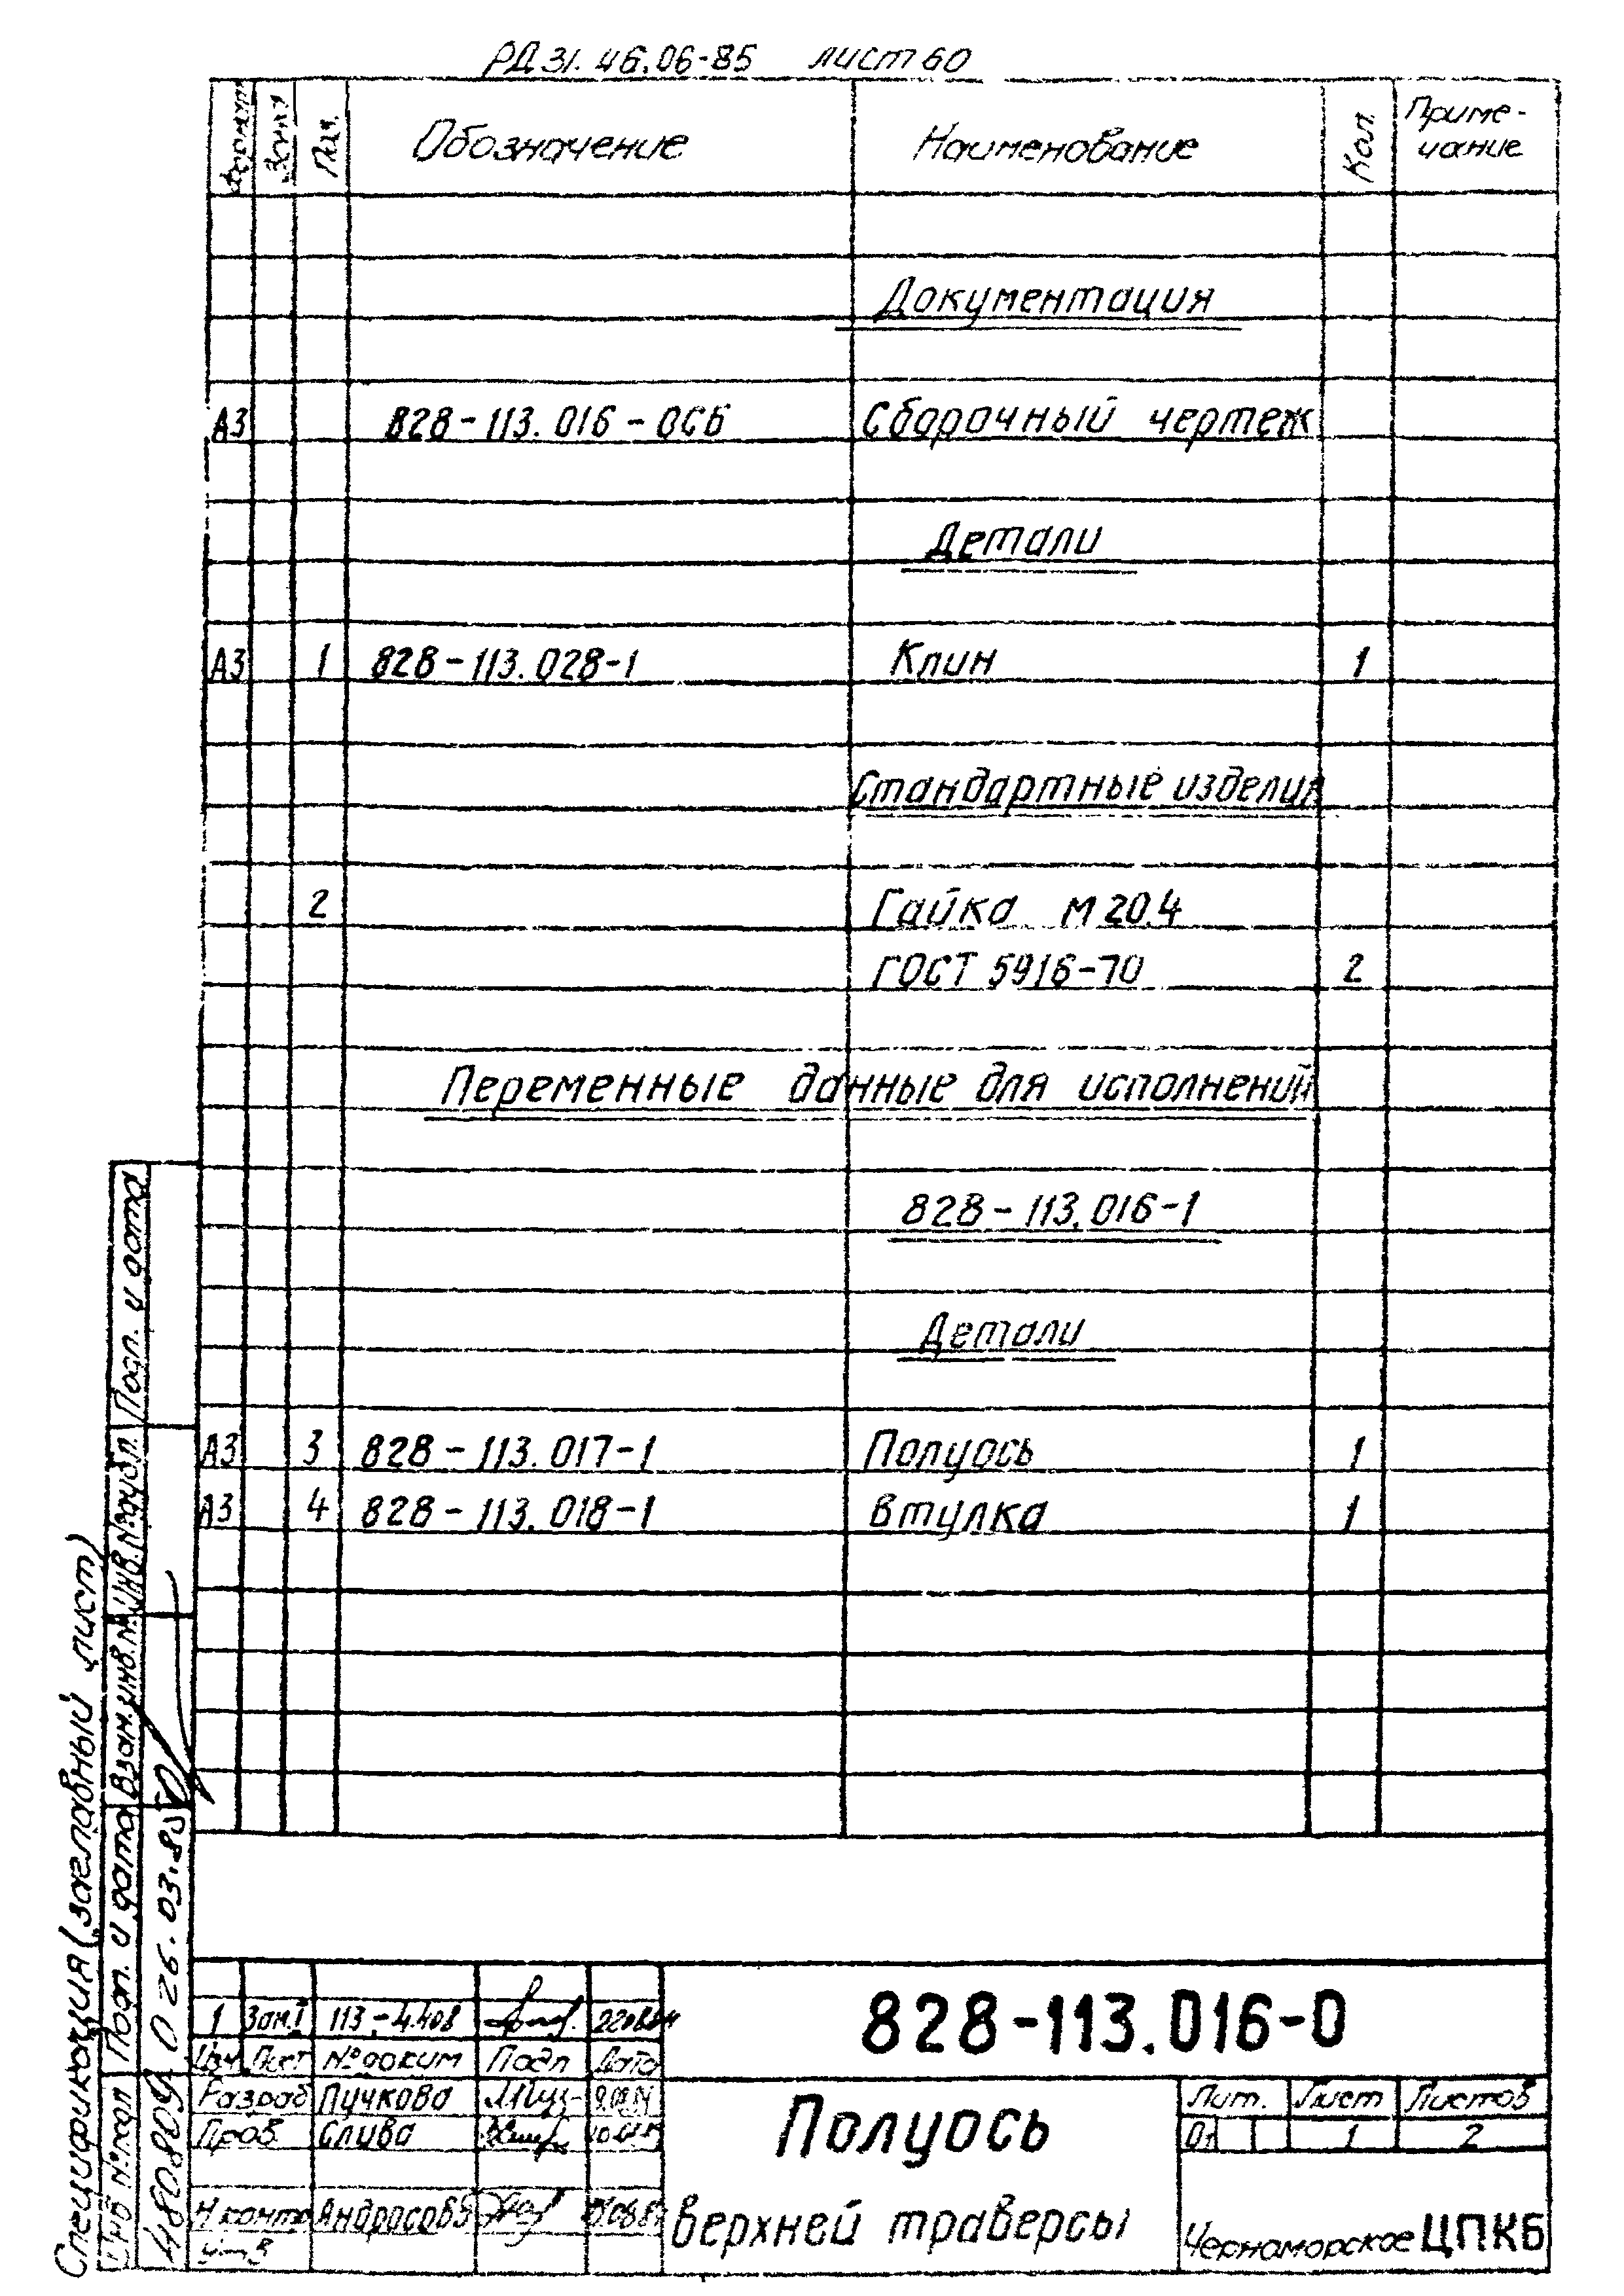 РД 31.46.06-85 лист 60
Формат Зона Поз. Обозначение Наименование Кол. Приме-
чание
Документация
А3 828-113.016-0СБ Сборочный чертеж
Детали
А3 1 828-113.028-1 Клин 1
Стандартные изделия
2 Гайка М20.4
ГОСТ 5916-70 2
Переменные данные для исполнений
828-113.016-1
Детали
А3 3 828-113.017-1 Полуось 1
А3 4 828-113.018-1 Втулка 1
Спецификация (заглавный лист)
Подп. и дата
Инв. № дубл.
Взам. инв. №
Подп. и дата
26.03.85
Инв № подл
828-113.016-0
1 Зам.1 113.-4.408
Изм Лист № доким Подп Дата
Разраб Пучкова
Пров Слива
Н контр Андросова
Утв
Полуось
верхней траверсы
Лит. Лист Листов
1 2
Черноморское ЦПКБ